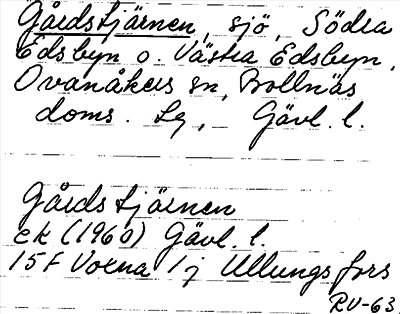 Gårdstjärnen, sjö, Södra
Edsbyn o. Västra Edsbyn,
Ovanåkers sn, Bollnäs
doms. Lg, Gävl. l.
Gårdstjärnen
ek (1960) Gävl. l.
15F Voxna 1j Ullungsfors
RV-63.